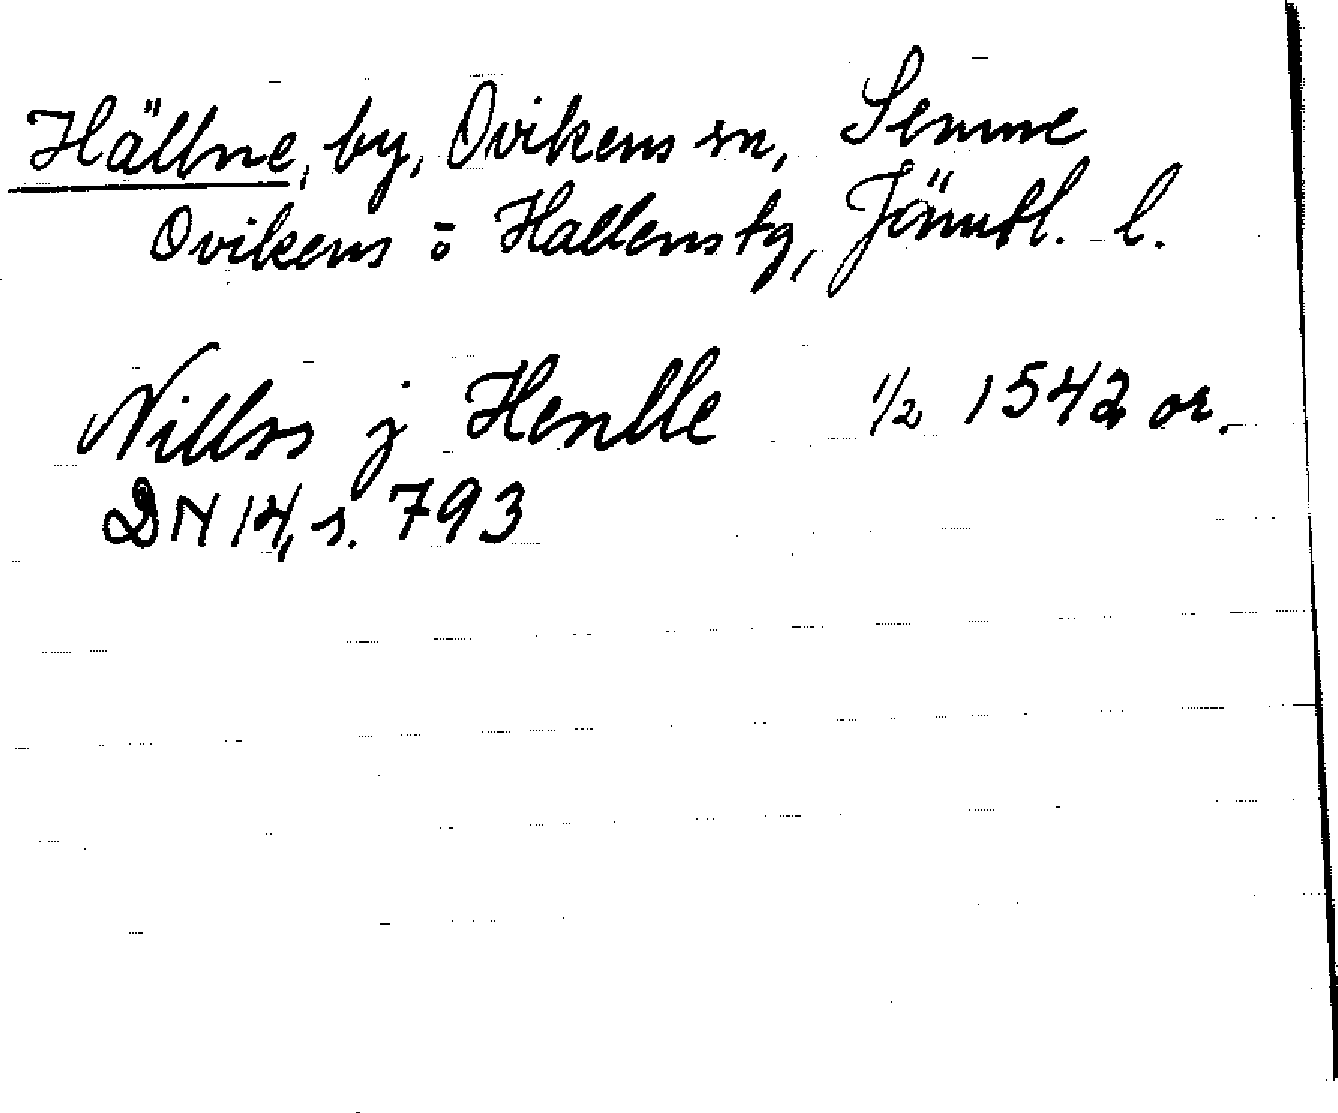 Hällne, by, Ovikens sn, Semme
Ovikens o Hallens tg, Jämtl. l.
Nillss j Henlle 1/2 1542 or.
DN 14, s. 793